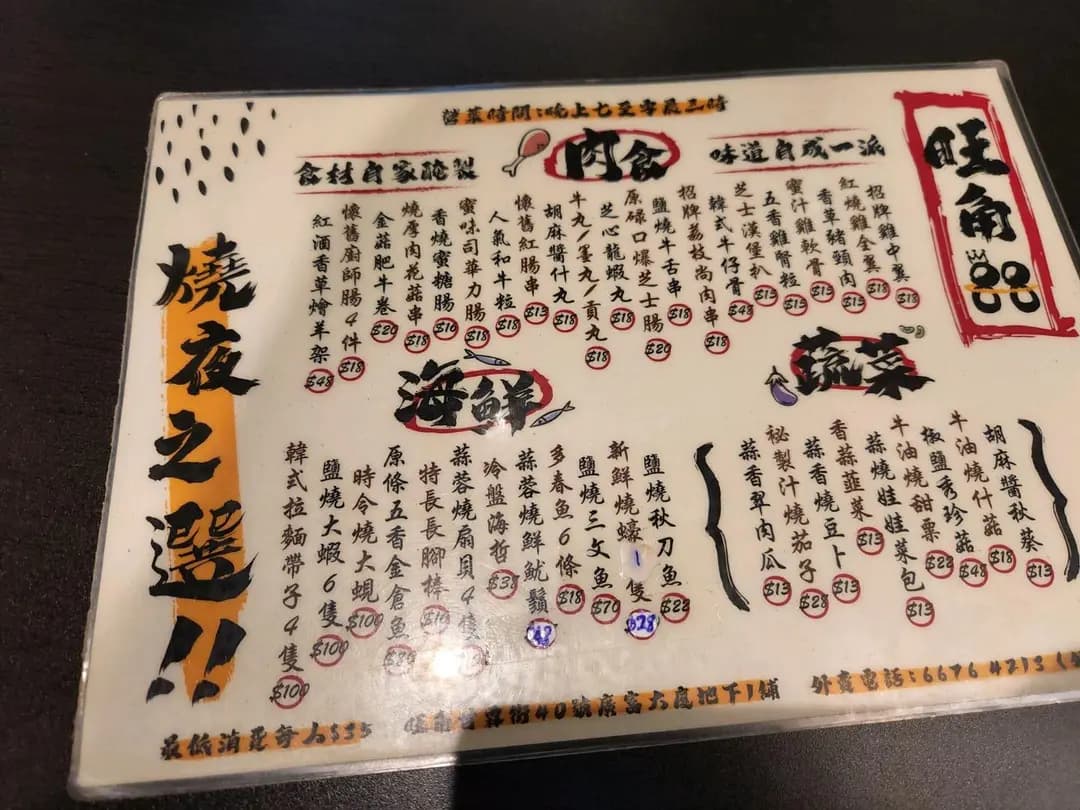 營業時間:晚上七至零晨三時
旺角
肉食
食材自家醃製
味道自成一派
招牌雞中翼 $18
紅燒雞全翼 $18
香草豬頸肉 $13
蜜汁雞軟骨 $13
五香雞腎粒 $13
芝士漢堡扒 $13
韓式牛仔骨 $48
招牌荔枝尚肉串 $18
鹽燒牛舌串 $18
原碌口爆芝士腸 $20
芝心龍蝦丸 $18
牛丸/墨丸/貢丸 $18
胡麻醬什丸 $18
懷舊紅腸串 $13
人氣和牛粒 $18
蜜味司華力腸 $18
香燒蜜糖腸 $10
燒厚肉花菇串 $18
金菇肥牛卷 $20
懷舊廚師腸4件 $18
紅酒香草燴羊架 $48
蔬菜
胡麻醬秋葵 $13
牛油燒什菇 $18
椒鹽秀珍菇 $48
牛油燒甜粟 $22
蒜燒娃娃菜包 $13
香蒜韮菜 $13
蒜香燒豆卜 $13
秘製汁燒茄子 $28
蒜香翠肉瓜 $13
海鮮
鹽燒秋刀魚 $22
新鮮燒蠔1隻 $28
鹽燒三文魚 $70
多春魚6條 $18
蒜蓉燒鮮魷鬚
冷盤海哲 $38
蒜蓉燒扇貝4隻
特長長腳棒 $10
原條五香金倉魚
時令燒大蜆 $100
鹽燒大蝦6隻 $100
韓式拉麵帶子4隻 $100
燒夜之選!!
最低消費每人$35
街40號廣富大廈地下1舖
外賣電話:6676 4213